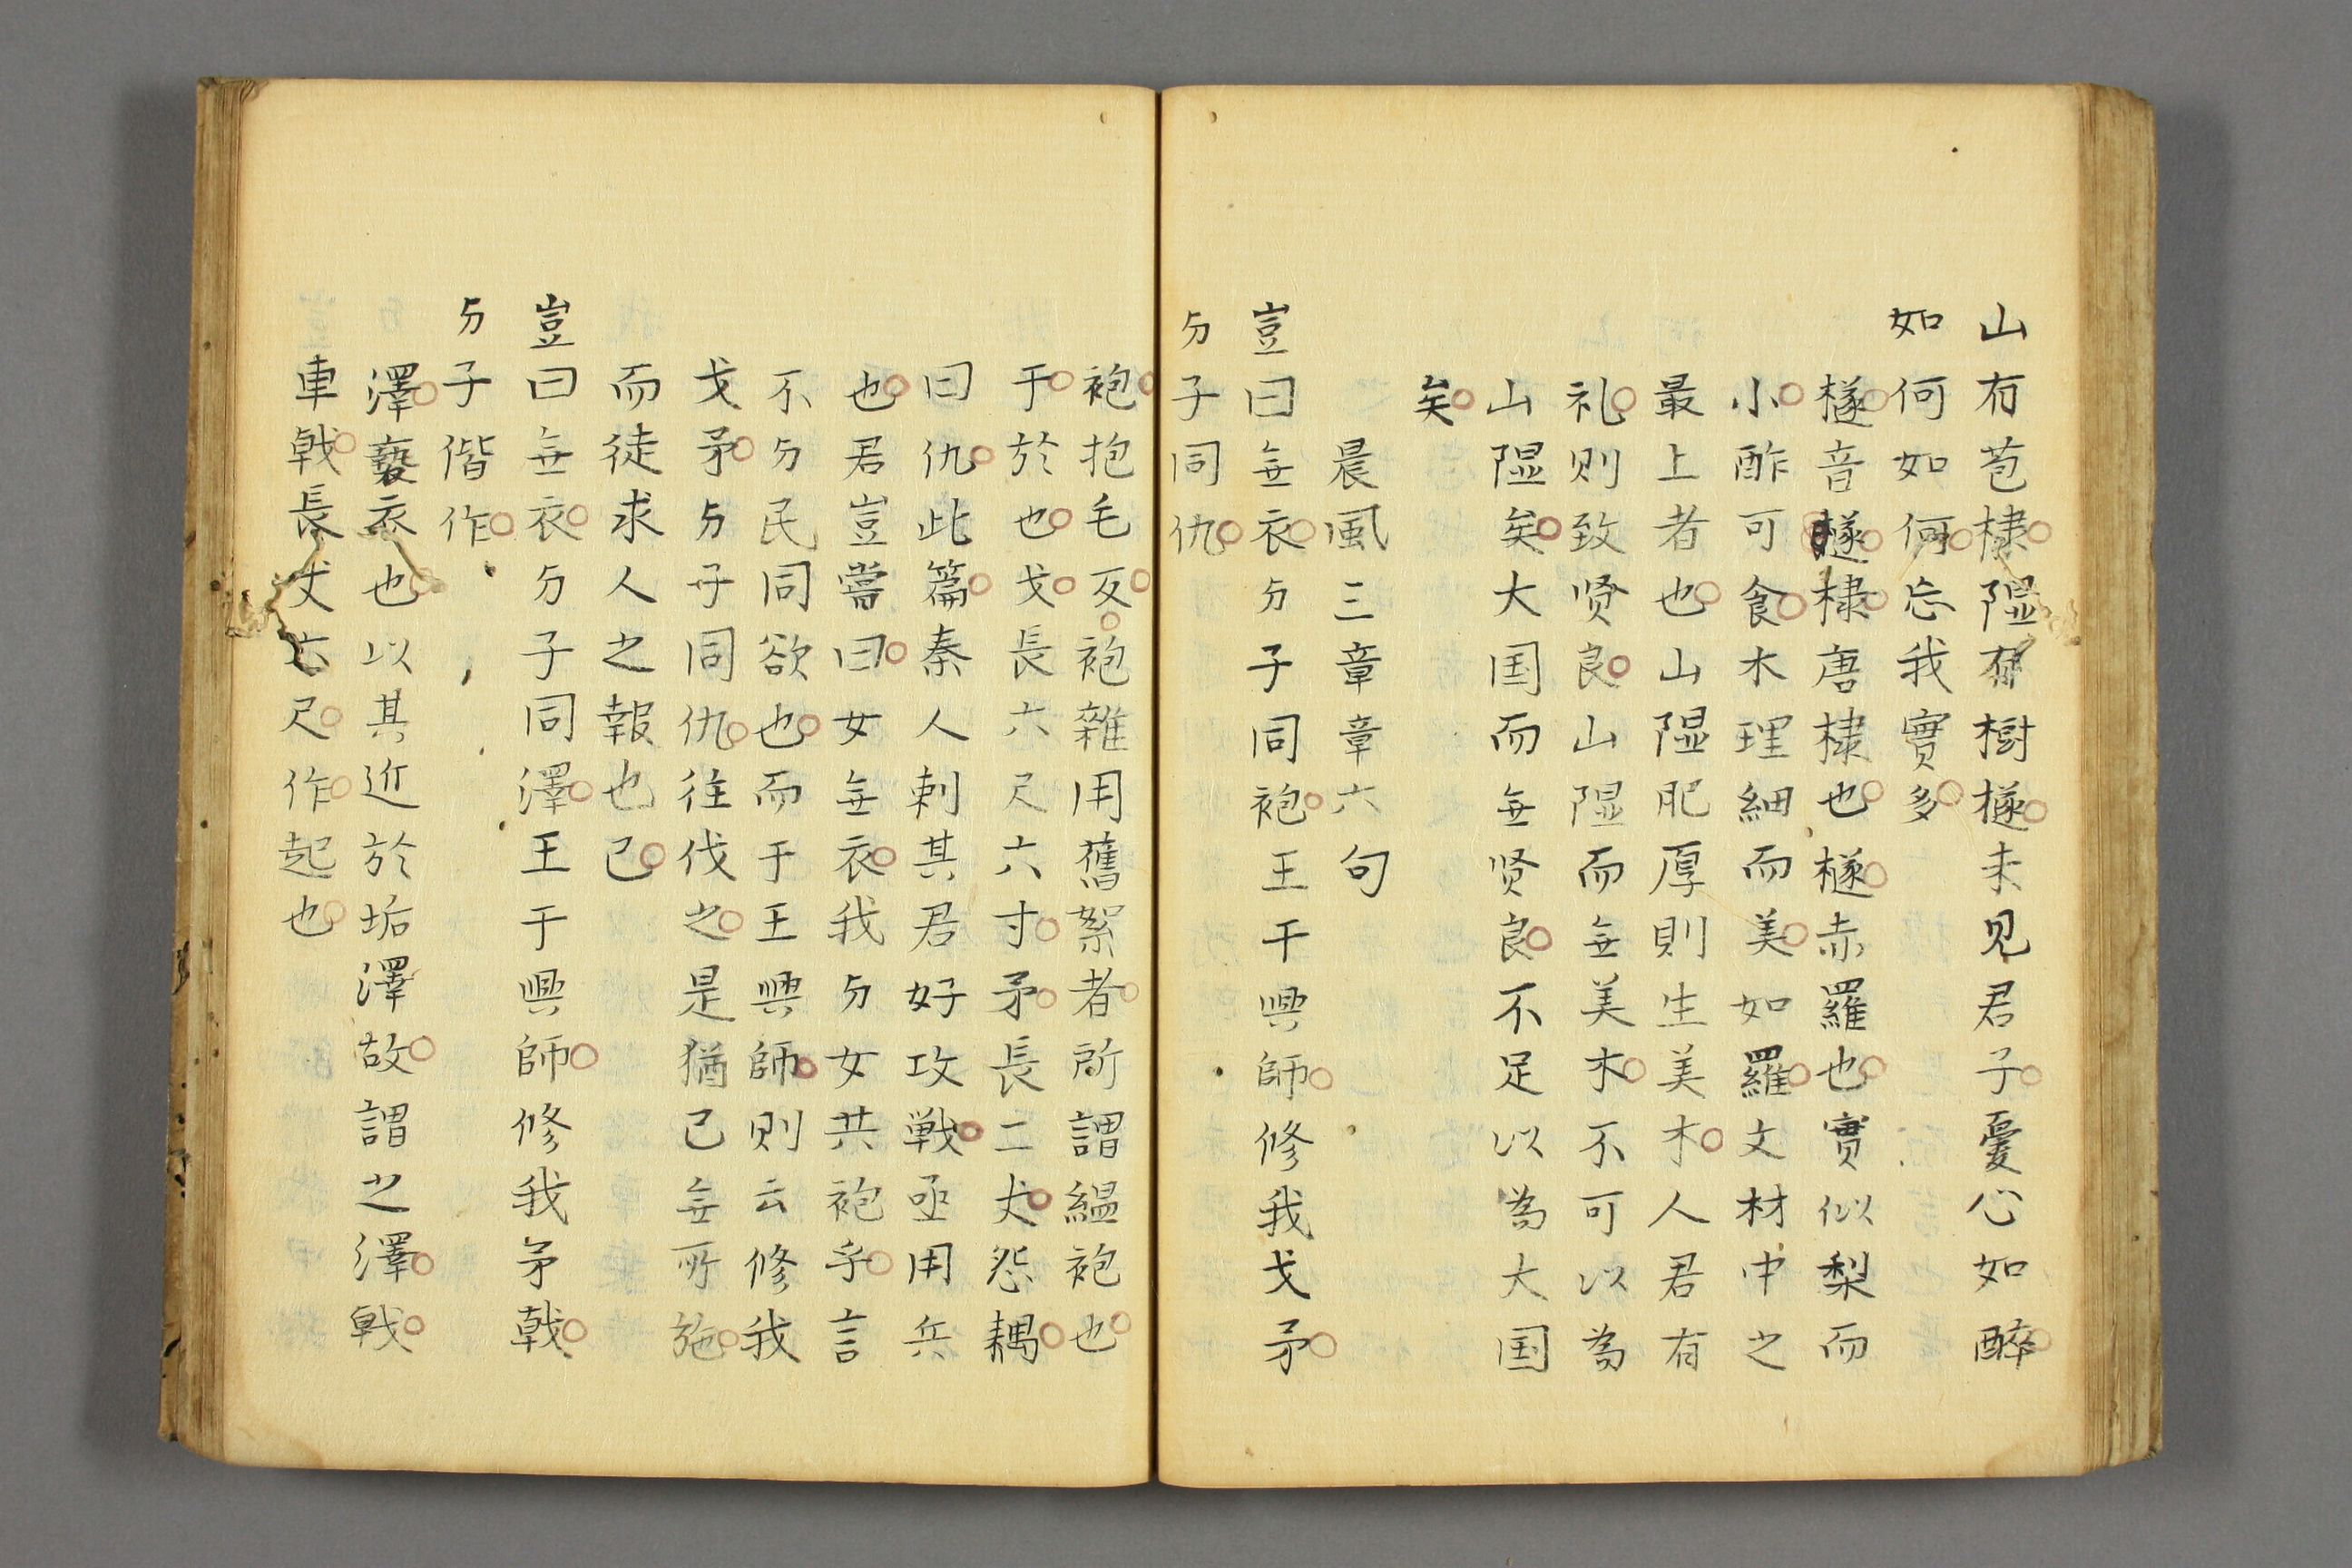 山有苞棣隰有樹檖未见君子憂心如醉
如何如何忘我實多
檖音檖棣唐棣也檖赤羅也實似梨而
小酢可食木理細而美如羅文材中之
最上者也山隰肥厚則生美木人君有
礼则致贤良山隰而無美木不可以為
山隰矣大国而無贤良不足以為大国
矣
晨風三章章六句
豈曰無衣与子同袍王于興師修我戈矛
与子同仇
袍抱毛反袍雜用舊絮者所謂緼袍也
于於也戈長六尺六寸矛長二丈怨耦
曰仇此篇秦人刺其君好攻戦亟用兵
也君豈嘗曰女無衣我与女共袍乎言
不与民同欲也而于王興師則云修我
戈矛与子同仇往伐之是猶已無所施
而徒求人之報也已
豈曰無衣与子同澤王于興師修我矛戟
与子偕作
澤褻衣也以其近於垢澤故謂之澤戟
車戟長丈六尺作起也